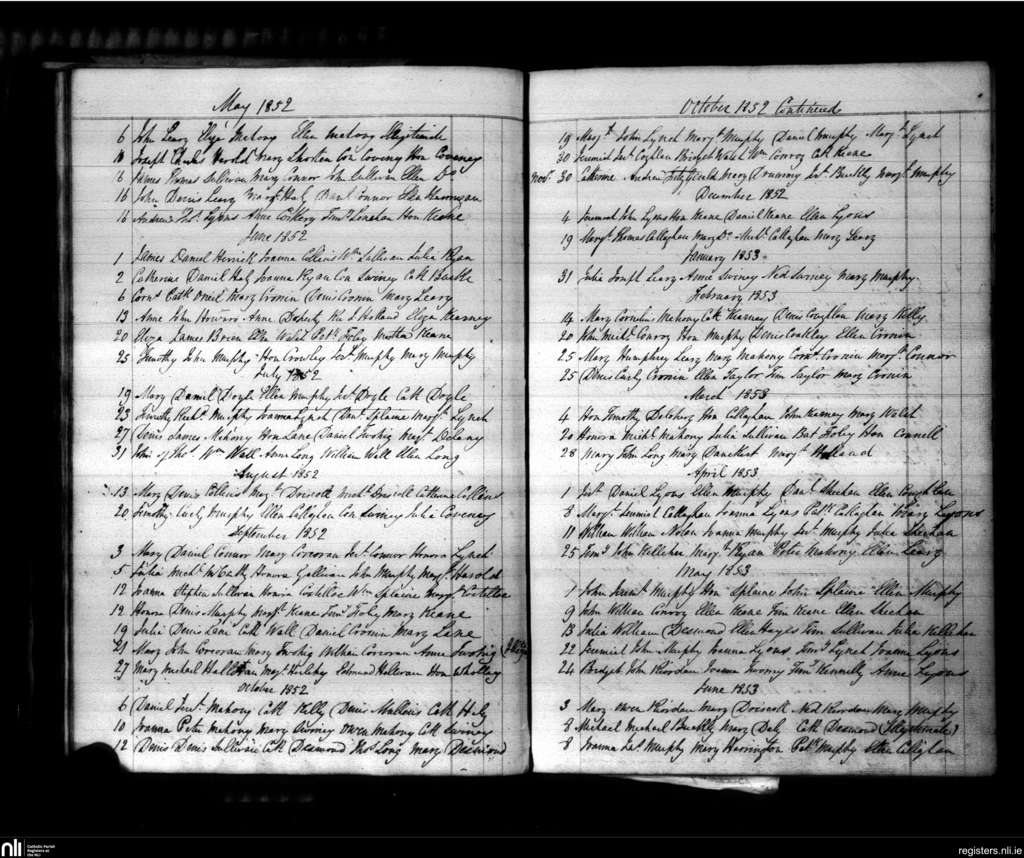 May 1852
6 John Leary Eliza Melony Ellen Melony Illegitimate
10 Joseph Charles Harold Mary Shorten Con Coveny Hon Coveney
16 James Thomas Sullivan Mary Connor John Sullivan Ellen Do
16 John Denis Leary Margt Haly Danl Connor
16 Andrew Thos. Lyons Anne Corkery Hon Keane
June 1852
1 James Daniel Herrick Joanna Collins Wm Sullivan Julia Ryan
2 Catherine Daniel Haly Joanna Ryan Con Swiney Cath Buckle
6 Corns Cath Oneil Mary Cronin Denis Cronin Mary Leary
13 Anne John Howard Anne Doherty Holland Eliza Kearney
20 Eliza James Breen Ellen Walsh Patk Foley Keane
25 Timothy John Murphy Hon Crowley Jerh Murphy Mary Murphy
July 1852
19 Mary Daniel Doyle Ellen Murphy Jerh Doyle Cath Doyle
23 Murphy Joanna Lynch Splaine Margt Lynch
27 Denis James Mahony Hon Lane Daniel Twohig Margt Delany
31 John of Thos. Wm Wall Anne Long William Wall Ellen Long
August 1852
13 Mary Denis Collins Margt Driscoll Michl Driscoll Catherine Collins
20 Timothy Curly Murphy Ellen Callaghan Con Swiney Julia Coveney
September 1852
3 Mary Daniel Connor Mary Corcoran Jerh Connor Honora Lynch
5 Julia Michl McCarthy Honora Gallivan John Murphy Margt Harold
12 Joanna Stephen Sullivan Honora Costelloe Wm Splaine Margt Costelloe
12 Honora Denis Murphy Margt Keane Timy Foley Mary Keane
19 Julia Denis Lane Cath Wall Daniel Cronin Mary Lane
21 Mary John Corcoran Mary Twohig William Corcoran Anne Twohig
27 Mary Michael Halloran Margt Hurley Edmond Halloran Hon
October 1852
6 Daniel Jerh. Mahony Cath Kelly Denis Cath Haly
10 Joanna Peter Mahony Mary Swiney Owen Mahony Cath Swiney
12 Denis Denis Sullivan Cath Desmond Thos Long Mary Desmond
October 1852 Continued
19 Margt. John Lynch Margt Murphy Daniel Murphy Margt Lynch
30 Jeremiah Jerh Coghlan Bridget Walsh Wm Conroy Cath Keane
Nov. 30 Catherine Andrew Fitzgerald Mary Jerh Buckley Margt Murphy
December 1852
4 Jeremiah John Lyons Hon Keane Daniel Keane Ellen Lyons
19 Margt Thomas Callaghan Mary Do Michl Callaghan Mary Leary
January 1853
31 Julia Joseph Leary Annie Swiney Ned Swiney Mary Murphy
February 1853
14 Mary Cornelius Mahony Cath Kearney Denis Coughlan Mary Kelly
20 John Michl Conroy Hon Murphy Denis Coakley Ellen Cronin
25 Mary Humphrey Leary Mary Mahony Corns Cronin Margt Connor
25 Denis Curly Cronin Ellen Taylor Tim Taylor Mary Cronin
March 1853
4 Hon Timothy Hon Callaghan John Kearney Mary Walsh
20 Honora Michl Mahony Julia Sullivan Bat Foley Hon Connell
28 Mary John Long Mary Margt Holland
April 1853
1 Jerh Daniel Lyons Ellen Murphy Danl Sheehan Ellen Coughlan
8 Margt Jeremiah Callaghan Joanna Lyons Patk Callaghan Mary Lyons
11 William William Nolan Joanna Murphy Jerh Murphy Julia Sheehan
25 Timy John Kelleher Margt Ryan Peter Mahony Ellen Leary
May 1853
1 John Jeremh Murphy Hon Splaine John Splaine Ellen Murphy
9 John William Conroy Ellen Keane Tim Keane Ellen Sheehan
13 Julia William Desmond Ellen Hayes Tim Sullivan Julia Kelleher
22 Jeremiah John Murphy Joanna Lyons Timy Lynch Joanna Lyons
24 Bridget John Riordan Joanna Twomy Timy Kennelly Anne Lyons
June 1853
3 Mary Owen Riordan Mary Driscoll Ned Riordan Mary Murphy
8 Michael Michael Buckly Mary Daly Cath Desmond (Illegitimate)
8 Joanna Jas Murphy Mary Harrington Patk Murphy Ellen Callaghan
nli Catholic Parish Registers at the NLI
registers.nli.ie